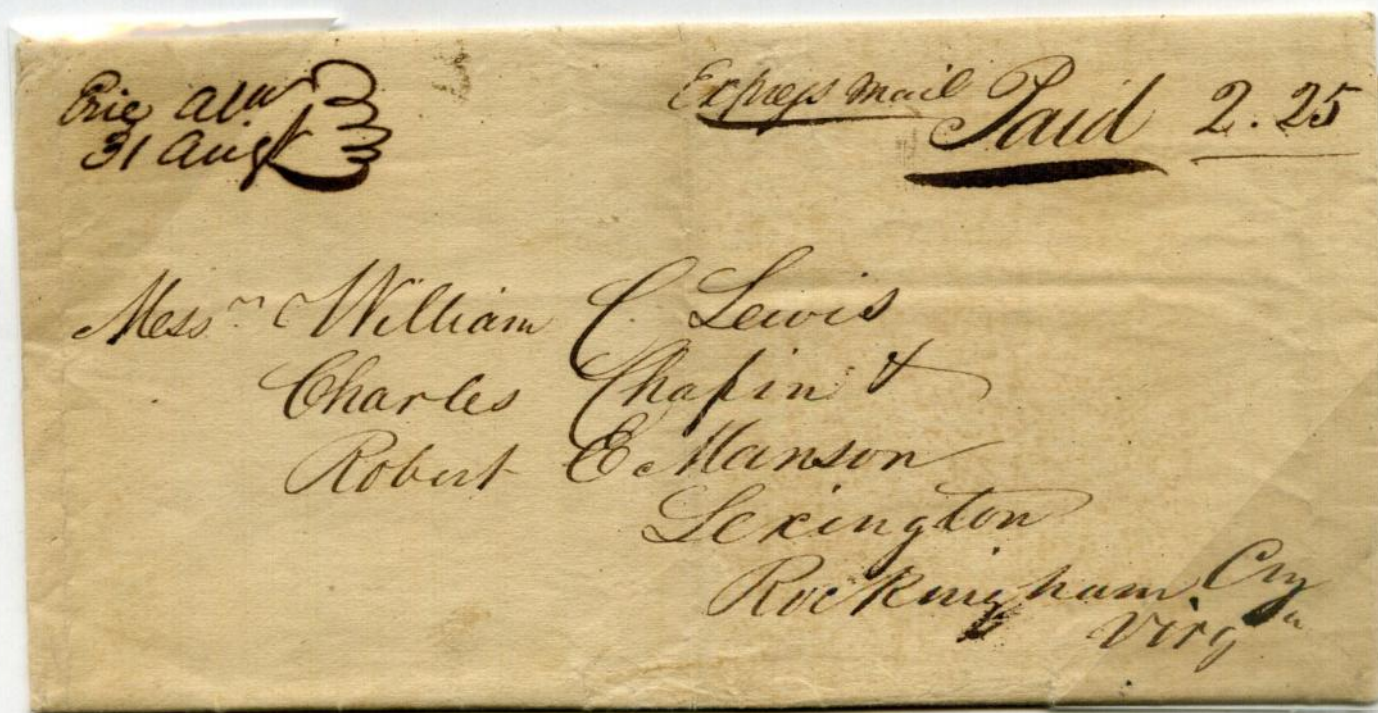 Erie Ala
31 Augt
Express mail Paid 2.25
Messrs William C. Lewis
Charles Chapin &
Robert E Manson
Lexington
Rockingham Cty
Virga